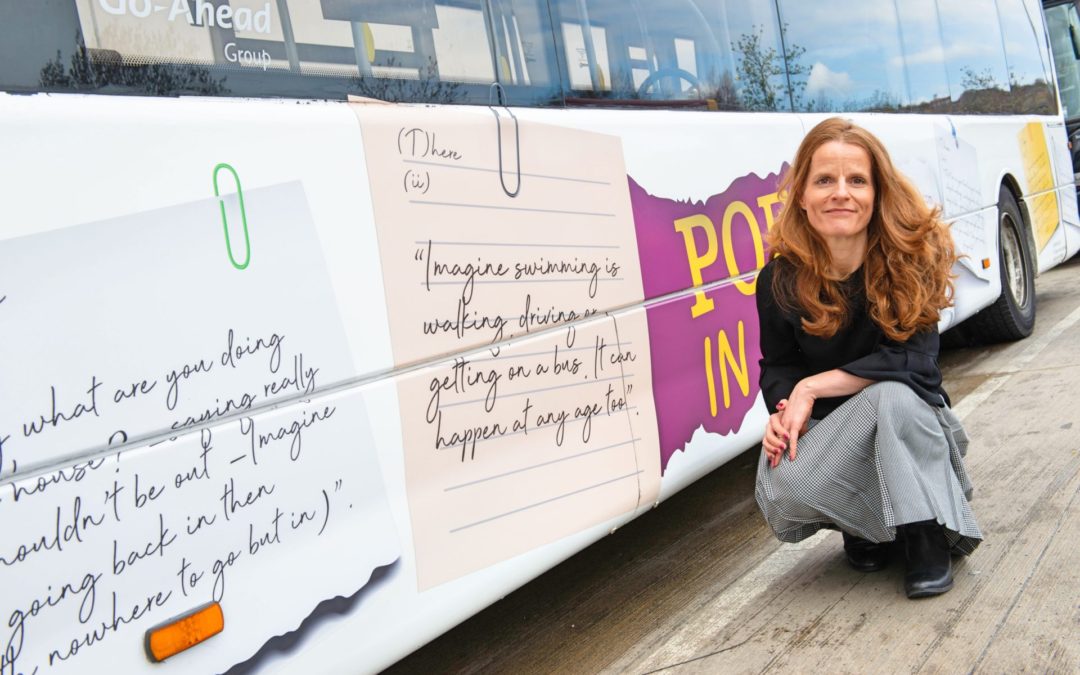 Go-Ahead
Group
what are you doing
house? - saying really
shouldn't be out - Imagine
going back in then
nowhere to go but in)".
(T)here
(ii)
"Imagine swimming is
walking, driving or
getting on a bus. It can
happen at any age too".
IN